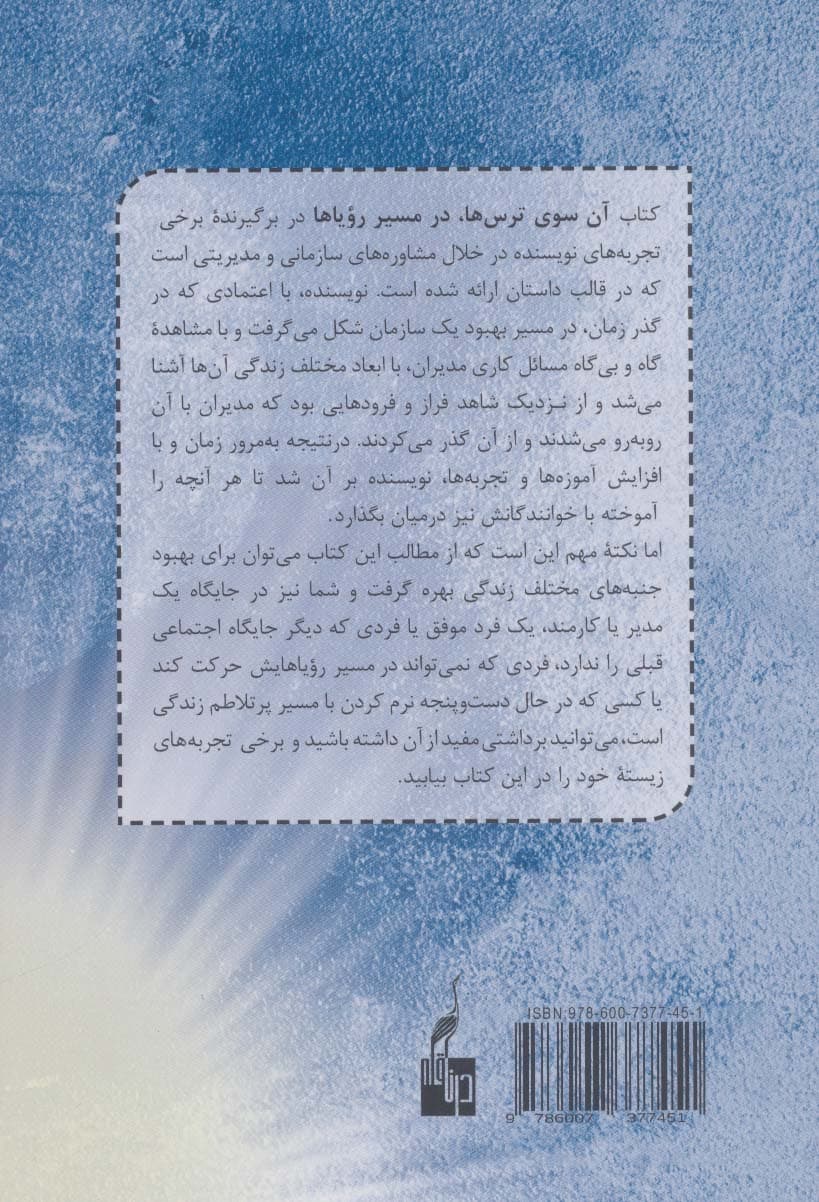 کتاب آن سوی ترس‌ها، در مسیر رؤیاها در برگیرندۀ برخی
تجربه‌های نویسنده در خلال مشاوره‌های سازمانی و مدیریتی است
که در قالب داستان ارائه شده است. نویسنده، با اعتمادی که در
گذر زمان، در مسیر بهبود یک سازمان شکل می‌گرفت و با مشاهدۀ
گاه و بی‌گاه مسائل کاری مدیران، با ابعاد مختلف زندگی آن‌ها آشنا
می‌شد و از نزدیک شاهد فراز و فرودهایی بود که مدیران با آن
روبه‌رو می‌شدند و از آن گذر می‌کردند. درنتیجه به‌مرور زمان و با
افزایش آموزه‌ها و تجربه‌ها، نویسنده بر آن شد تا هر آنچه را
آموخته با خوانندگانش نیز درمیان بگذارد.
اما نکتۀ مهم این است که از مطالب این کتاب می‌توان برای بهبود
جنبه‌های مختلف زندگی بهره گرفت و شما نیز در جایگاه یک
مدیر یا کارمند، یک فرد موفق یا فردی که دیگر جایگاه اجتماعی
قبلی را ندارد، فردی که نمی‌تواند در مسیر رؤیاهایش حرکت کند
یا کسی که در حال دست‌وپنجه نرم کردن با مسیر پرتلاطم زندگی
است، می‌توانید برداشتی مفید از آن داشته باشید و برخی تجربه‌های
زیستۀ خود را در این کتاب بیابید.
ISBN:978-600-7377-45-1
9 786007 377451